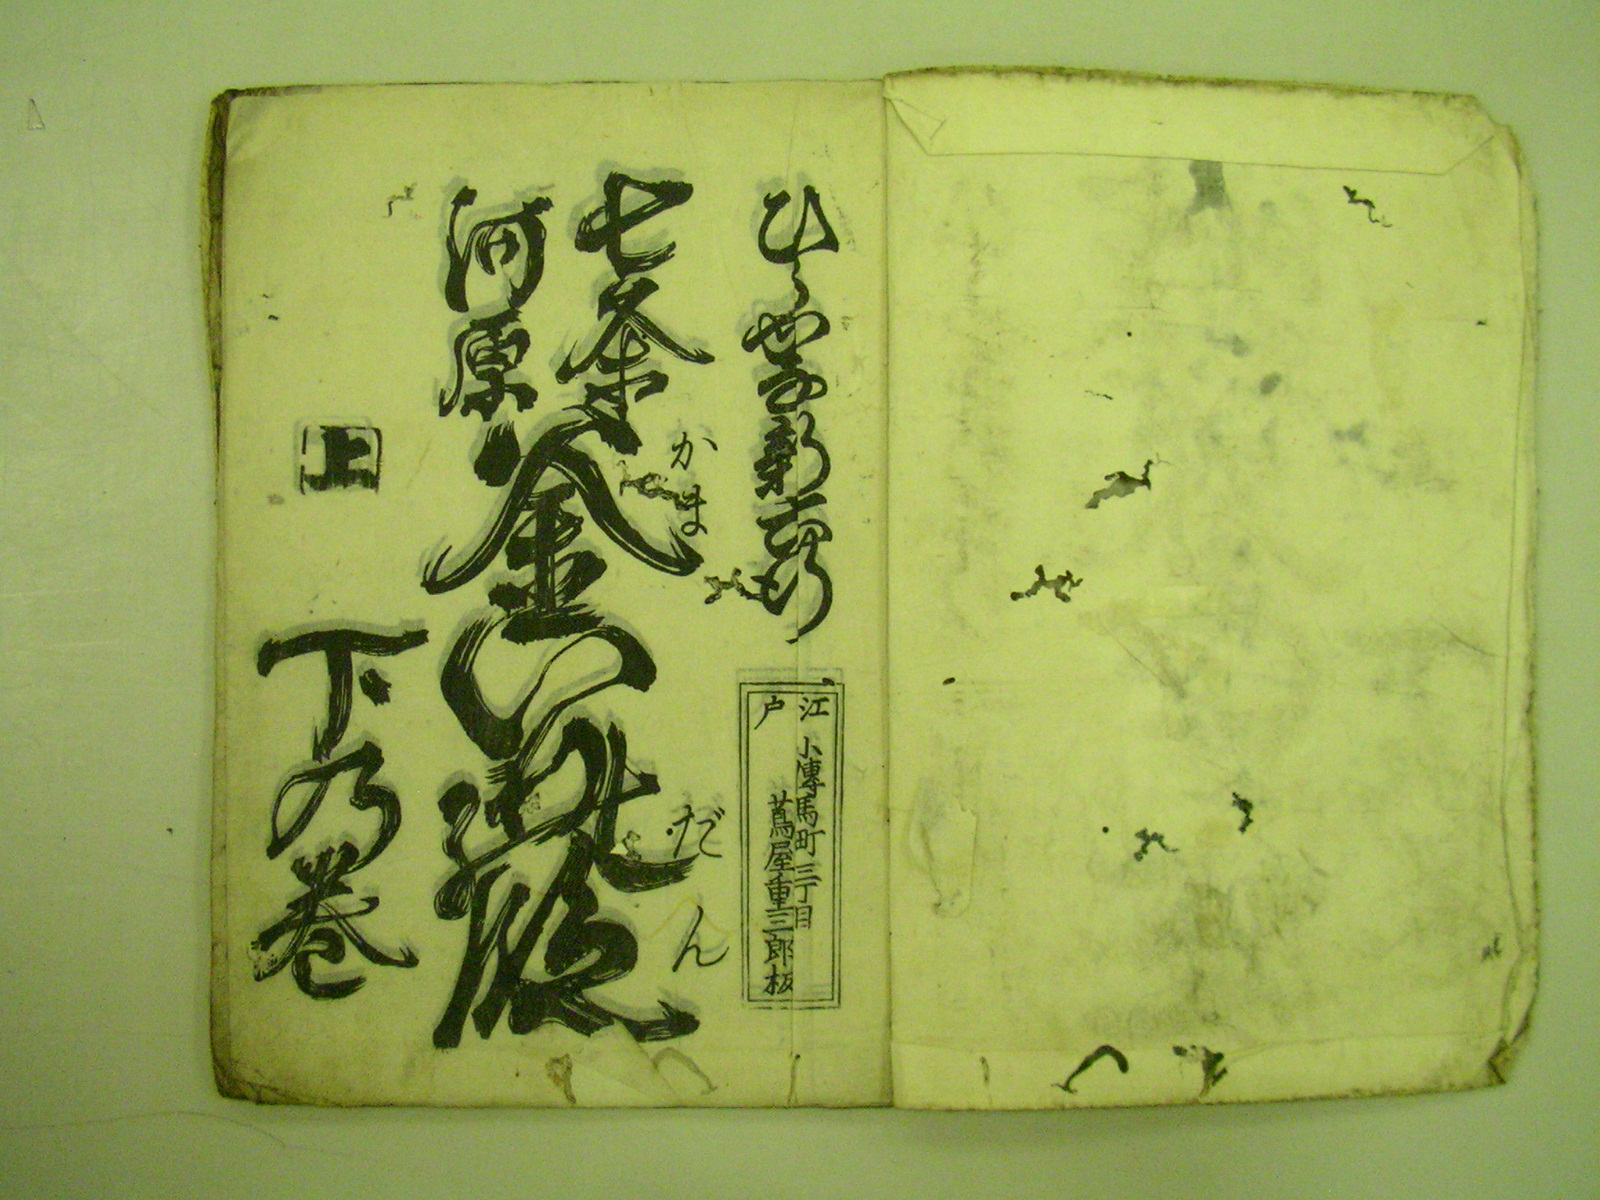 七条
河原
釜いりの段
かま
だん
下の巻
上
江戸
小傳馬町三丁目
蔦屋重三郎板